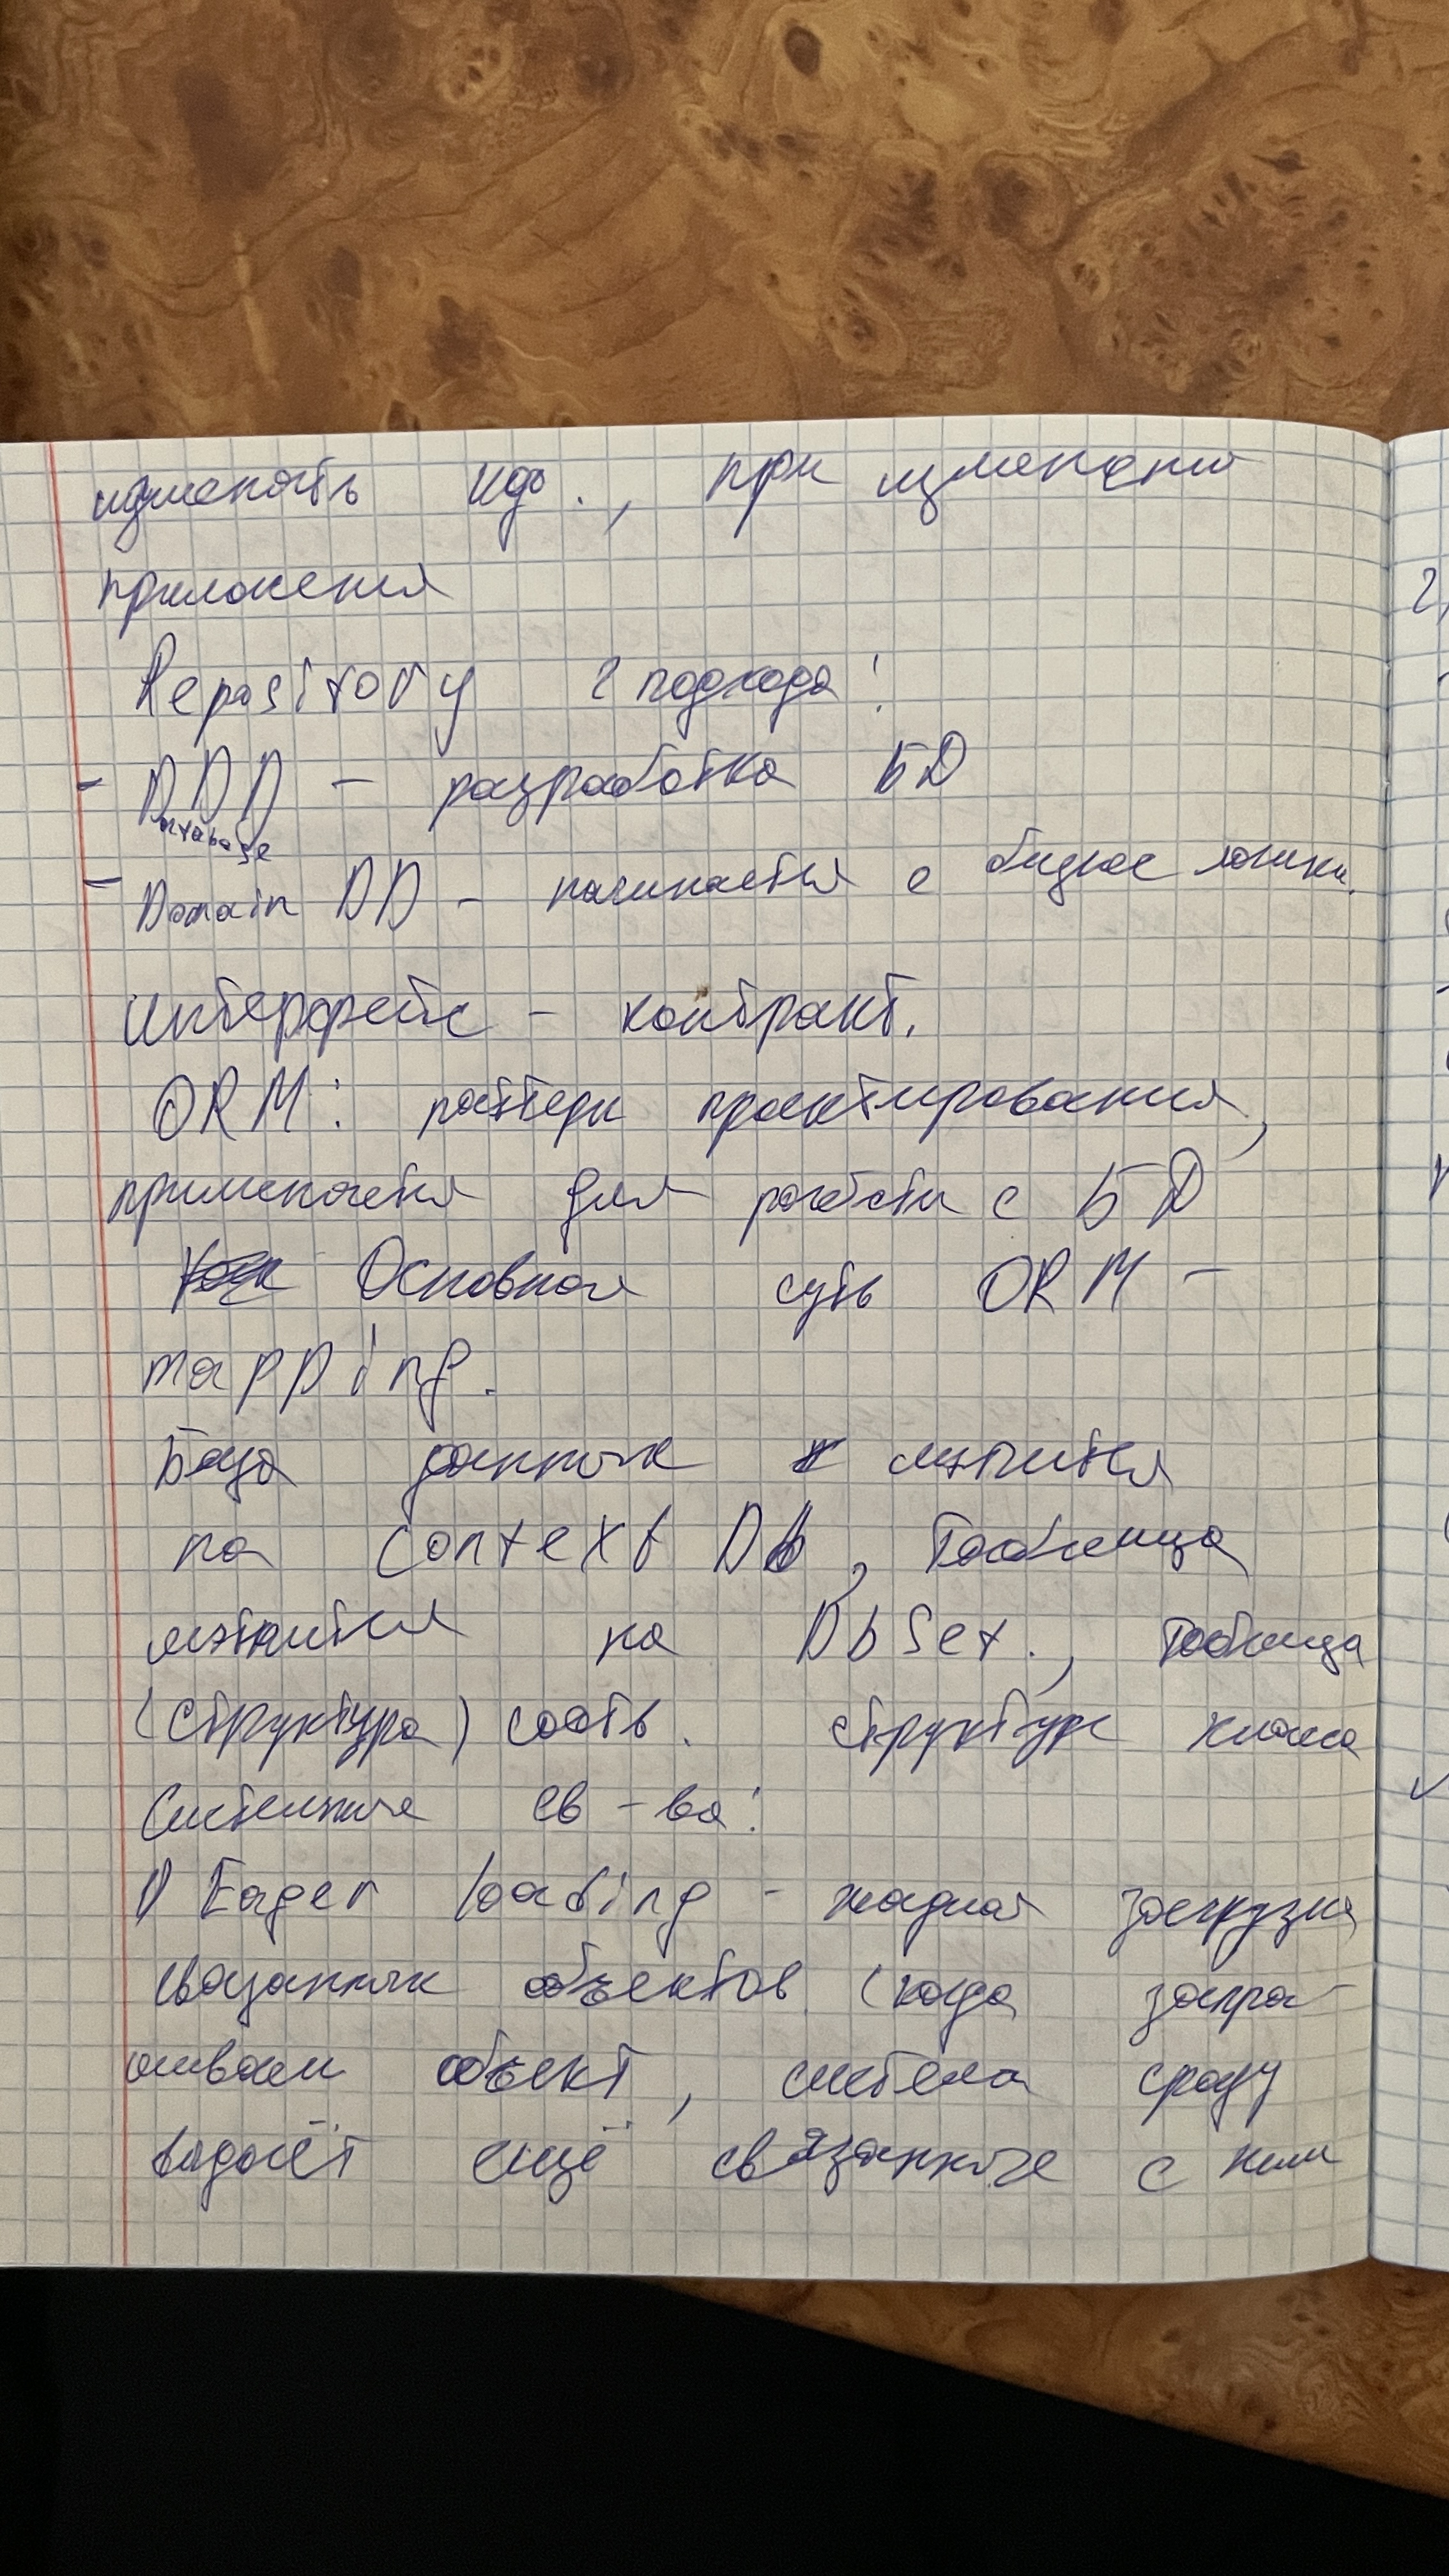 изменять идо., при изменени
приложения
Repository 2 подхода:
- DDD - разработка БД
Database
- Domain DD - начинается с бизнес логики.
Интерфейс - контракт.
ORM: паттерн проектирования,
применяется для работы с БД
Основная суть ORM -
mapping.
База данных мэпится
на Context Db, таблица
мэпится на DbSet., таблица
(структура) соотв. структуре класса
Системные св-ва:
1) Eager loading - жадная загрузка
связанных объектов (когда запра-
шиваем объект, система сразу
выдаёт ещё связанные с ним